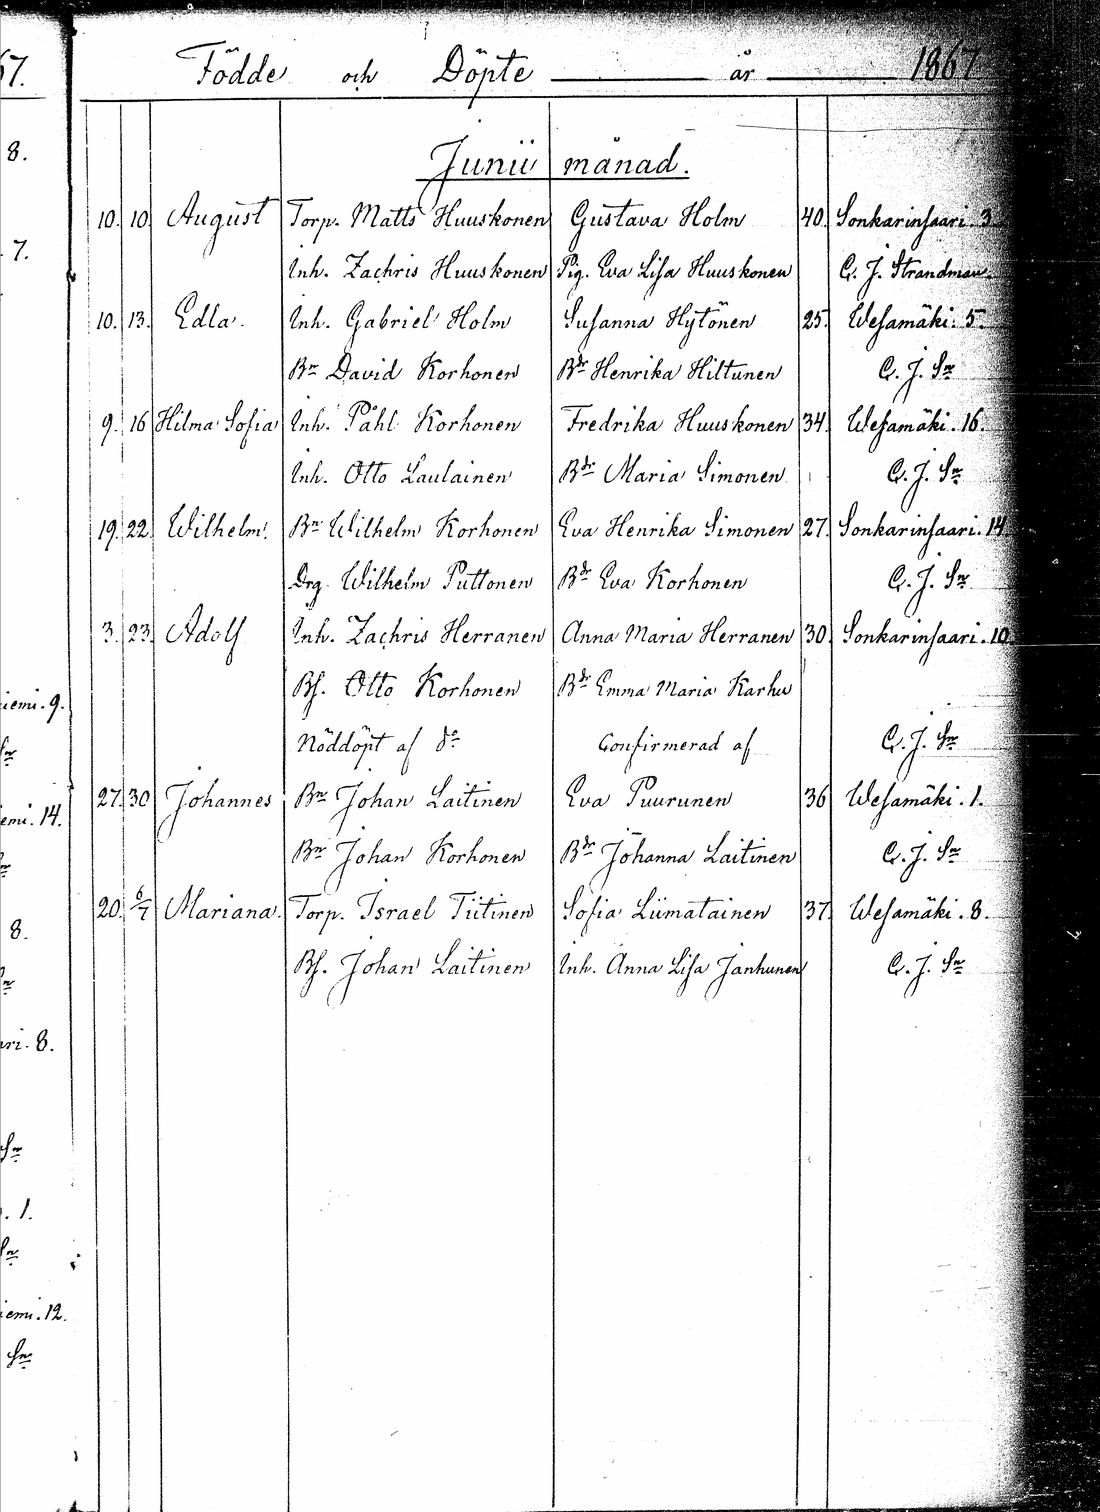 Födde och Döpte år 1867
Junii månad.
10. 10. August Torp. Matts Huuskonen Gustava Holm 40. Sonkarinsaari. 3.
Inh. Zachris Huuskonen Pig. Eva Lisa Huuskonen C. J. Strandman.
10. 13. Edla. Inh. Gabriel Holm Susanna Hytönen 25. Wesamäki. 5.
Bn David Korhonen Bdr Henrika Hiltunen C. J. Sn
9. 16 Hilma Sofia Inh. Påhl Korhonen Fredrika Huuskonen 34. Wesamäki. 16.
Inh. Otto Laulainen Bdr Maria Simonen C. J. Sn
19. 22. Wilhelm. Bn Wilhelm Korhonen Eva Henrika Simonen 27. Sonkarinsaari. 14
Drg. Wilhelm Puttonen Bdr Eva Korhonen C. J. Sn
3. 23. Adolf Inh. Zachris Herranen Anna Maria Herranen 30. Sonkarinsaari. 10
Bs. Otto Korhonen Bdr Emma Maria Karhu
Nöddöpt af do Confirmerad af C. J. Sn
27. 30 Johannes Bn Johan Laitinen Eva Puurunen 36 Wesamäki. 1.
Bn Johan Korhonen Bdr Johanna Laitinen C. J. Sn
20. 6/7 Mariana. Torp. Israel Tiitinen Sofia Liimatainen 37. Wesamäki. 8.
Bs. Johan Laitinen Inh. Anna Lisa Janhunen C. J. Sn
67.
8.
7.
iemi. 9.
Sn
emi. 14.
8.
ari. 8.
Sn
. 1.
Sn
iemi. 12.
Sn